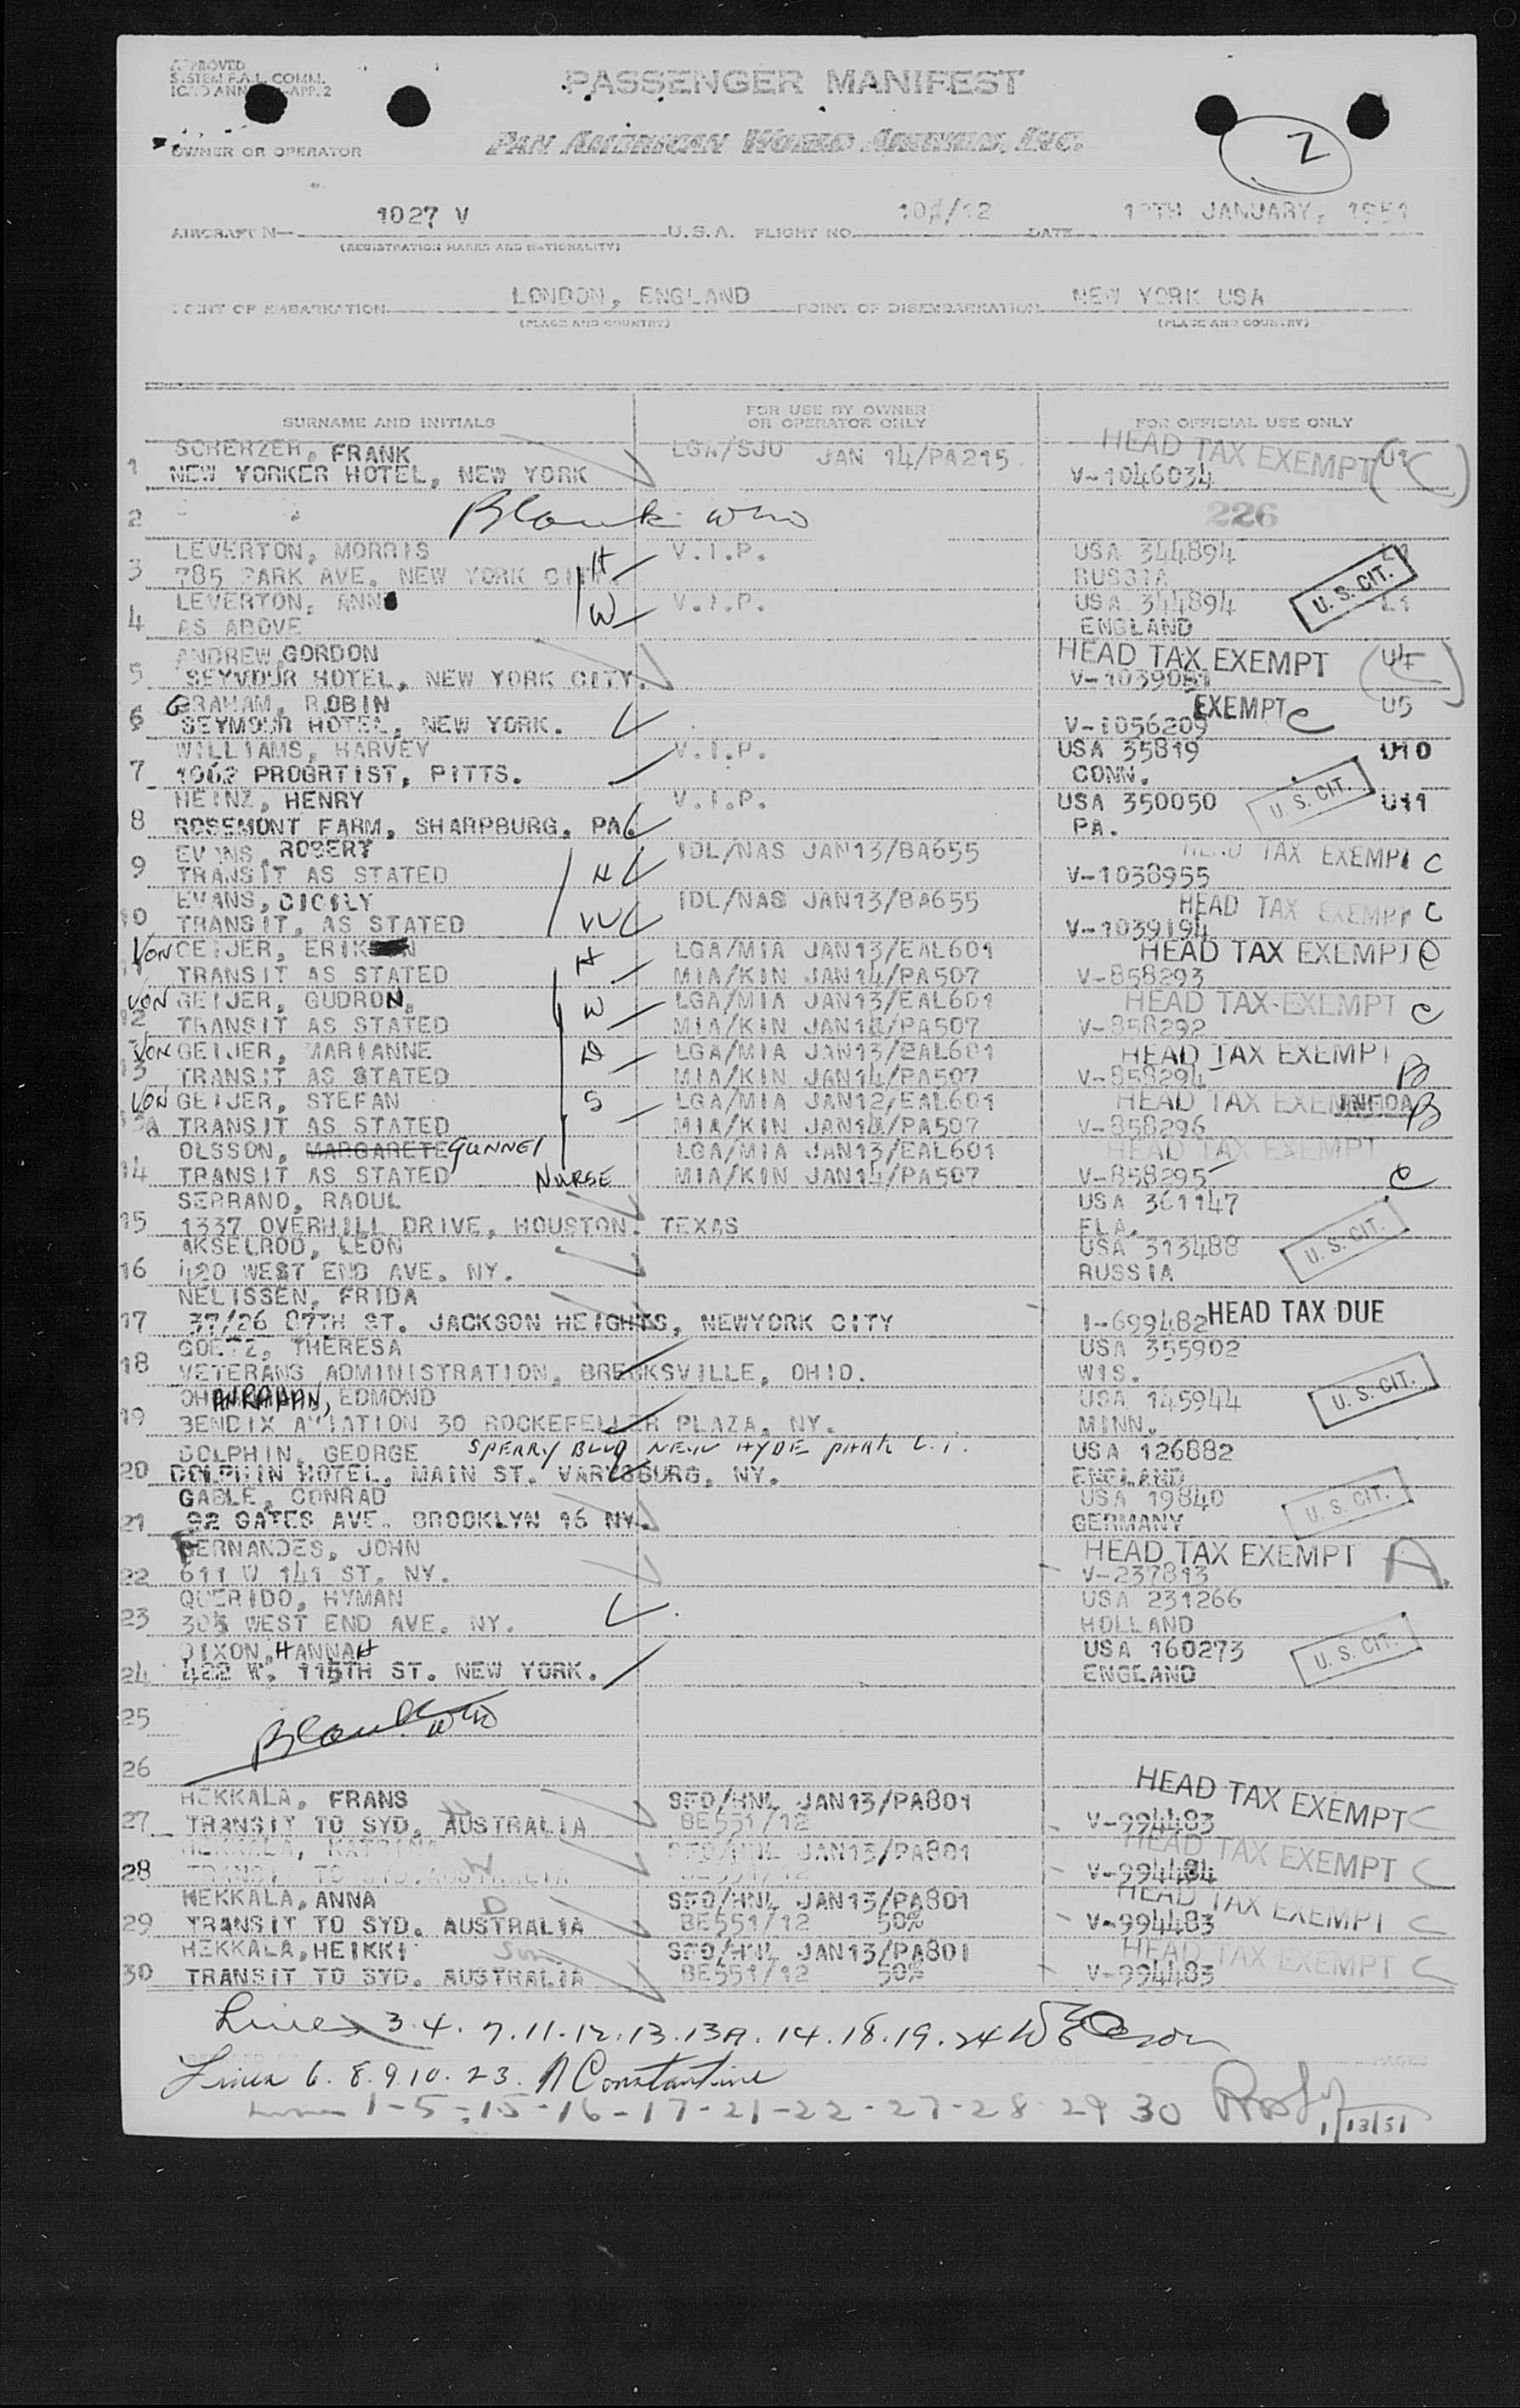 APPROVED
SYSTEM F.A.L. COMM.
PASSENGER MANIFEST
OWNER OR OPERATOR
PAN AMERICAN WORLD AIRWAYS, INC.
2
AIRCRAFT N— 1027 V U.S.A. FLIGHT NO. DATE JANUARY, 1951
(REGISTRATION MARKS AND NATIONALITY)
POINT OF EMBARKATION LONDON, ENGLAND POINT OF DISEMBARKATION NEW YORK USA
(PLACE AND COUNTRY) (PLACE AND COUNTRY)
SURNAME AND INITIALS FOR USE BY OWNER OR OPERATOR ONLY FOR OFFICIAL USE ONLY
SCHERZER, FRANK LGA/SJU JAN 14/PA215 HEAD TAX EXEMPT U1 C
1 NEW YORKER HOTEL, NEW YORK V-1046034
2 Blank 226
LEVERTON, MORRIS H V.I.P. USA 344894
3 785 PARK AVE. NEW YORK CITY RUSSIA U.S. CIT.
LEVERTON, ANN W V.I.P. USA 344894
4 AS ABOVE ENGLAND
ANDREW, GORDON HEAD TAX EXEMPT U4
5 SEYMOUR HOTEL, NEW YORK CITY. V-1039051
GRAHAM, ROBIN EXEMPT C U5
6 SEYMOUR HOTEL, NEW YORK. V-1056209
WILLIAMS, HARVEY V.I.P. USA 35819 U10
7 1062 PROGRTIST, PITTS. CONN.
HEINZ, HENRY V.I.P. USA 350050 U.S. CIT. U11
8 ROSEMONT FARM, SHARPBURG. PA. PA.
EVANS, ROBERT IDL/NAS JAN13/BA655 HEAD TAX EXEMPT C
9 TRANSIT AS STATED H V-1038955
EVANS, CICILY IDL/NAS JAN13/BA655 HEAD TAX EXEMPT C
10 TRANSIT, AS STATED W V-1039194
VON GEIJER, ERIK LGA/MIA JAN13/EAL601 HEAD TAX EXEMPT C
11 TRANSIT AS STATED H MIA/KIN JAN14/PA507 V-858293
VON GEIJER, GUDRON, W LGA/MIA JAN13/EAL601 HEAD TAX EXEMPT C
12 TRANSIT AS STATED MIA/KIN JAN14/PA507 V-858292
VON GEIJER, MARIANNE D LGA/MIA JAN13/EAL601 HEAD TAX EXEMPT
13 TRANSIT AS STATED MIA/KIN JAN14/PA507 V-858294 B
VON GEIJER, STEFAN S LGA/MIA JAN12/EAL601 HEAD TAX EXEMPT B
13A TRANSIT AS STATED MIA/KIN JAN14/PA507 V-858296
OLSSON, MARGARETE GUNNEL LGA/MIA JAN13/EAL601 HEAD TAX EXEMPT
14 TRANSIT AS STATED NURSE MIA/KIN JAN14/PA507 V-858295 C
SERRANO, RAOUL USA 361147
15 1337 OVERHILL DRIVE, HOUSTON. TEXAS FLA. U.S. CIT.
AKSELROD, LEON USA 313488
16 420 WEST END AVE. NY. RUSSIA
NELISSEN, FRIDA
17 37/26 87TH ST. JACKSON HEIGHTS, NEWYORK CITY I-699482 HEAD TAX DUE
GOETZ, THERESA USA 355902
18 VETERANS ADMINISTRATION, BRECKSVILLE, OHIO. WIS. U.S. CIT.
EDMOND USA 145944
19 BENDIX AVIATION 30 ROCKEFELLER PLAZA, NY. MINN.
DOLPHIN, GEORGE SPERRY BLDG NEW HYDE PARK L.I. USA 126882
20 DOLPHIN HOTEL, MAIN ST. VARYSBURG, NY. ENGLAND
GABLE, CONRAD USA 19840 U.S. CIT.
21 92 GATES AVE. BROOKLYN 16 NY. GERMANY
FERNANDES, JOHN HEAD TAX EXEMPT A
22 611 W 141 ST. NY. V-237813
QUERIDO, HYMAN USA 231266
23 305 WEST END AVE. NY. HOLLAND
DIXON, HANNAH USA 160273 U.S. CIT.
24 422 W. 115TH ST. NEW YORK. ENGLAND
25 Blank
26
HEKKALA, FRANS SFO/HNL JAN13/PA801 HEAD TAX EXEMPT C
27 TRANSIT TO SYD. AUSTRALIA BE551/12 V-994483
HEKKALA, W SFO/HNL JAN13/PA801 HEAD TAX EXEMPT C
28 TRANSIT TO SYD. AUSTRALIA BE551/12 V-994484
HEKKALA, ANNA D SFO/HNL JAN13/PA801 HEAD TAX EXEMPT C
29 TRANSIT TO SYD. AUSTRALIA BE551/12 50% V-994483
HEKKALA, HEIKKI Son SFO/HNL JAN13/PA801 HEAD TAX EXEMPT C
30 TRANSIT TO SYD. AUSTRALIA BE551/12 50% V-994483
Lines 3.4. 7.11.12.13.13A.14.18.19.24
Lines 6.8.9.10.23. N Constantine
Lines 1-5-15-16-17-21-22-27-28 29 30
1/13/51